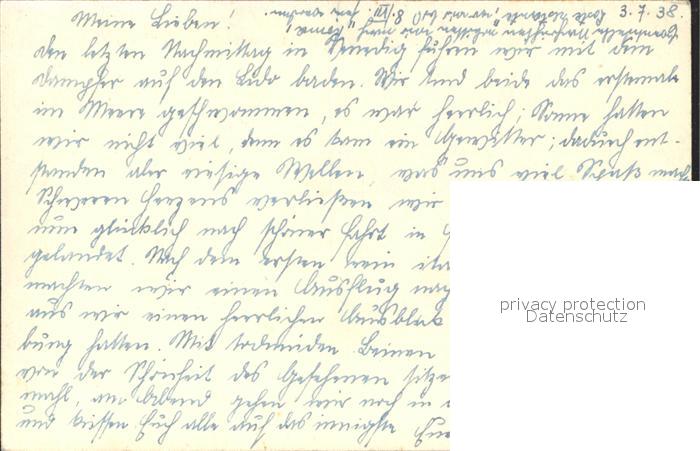 3.7.38.
Meine Lieben!
den letzten Nachmittag in Venedig fuhren wir mit dem
Dampfer auf den Lido baden. Wir sind beide das erstemal
im Meere geschwommen, es war herrlich; Sonne hatten
wir nicht viel, denn es kam ein Gewitter; dadurch ent-
standen aber riesige Wellen, was uns viel Spaß mach
Schweren Herzens verließen wir
nun glücklich nach schöner Fahrt in
gelandet. Nach dem ersten rein ita
machten wir einen Ausflug nach
aus wir einen herrlichen Ausblick
bung hatten. Mit todmüden Beinen
von der Schönheit des Gesehenen sitze
mahl, am Abend gehen wir noch in
und küssen Euch alle auf das innigste Eue
privacy protection
Datenschutz